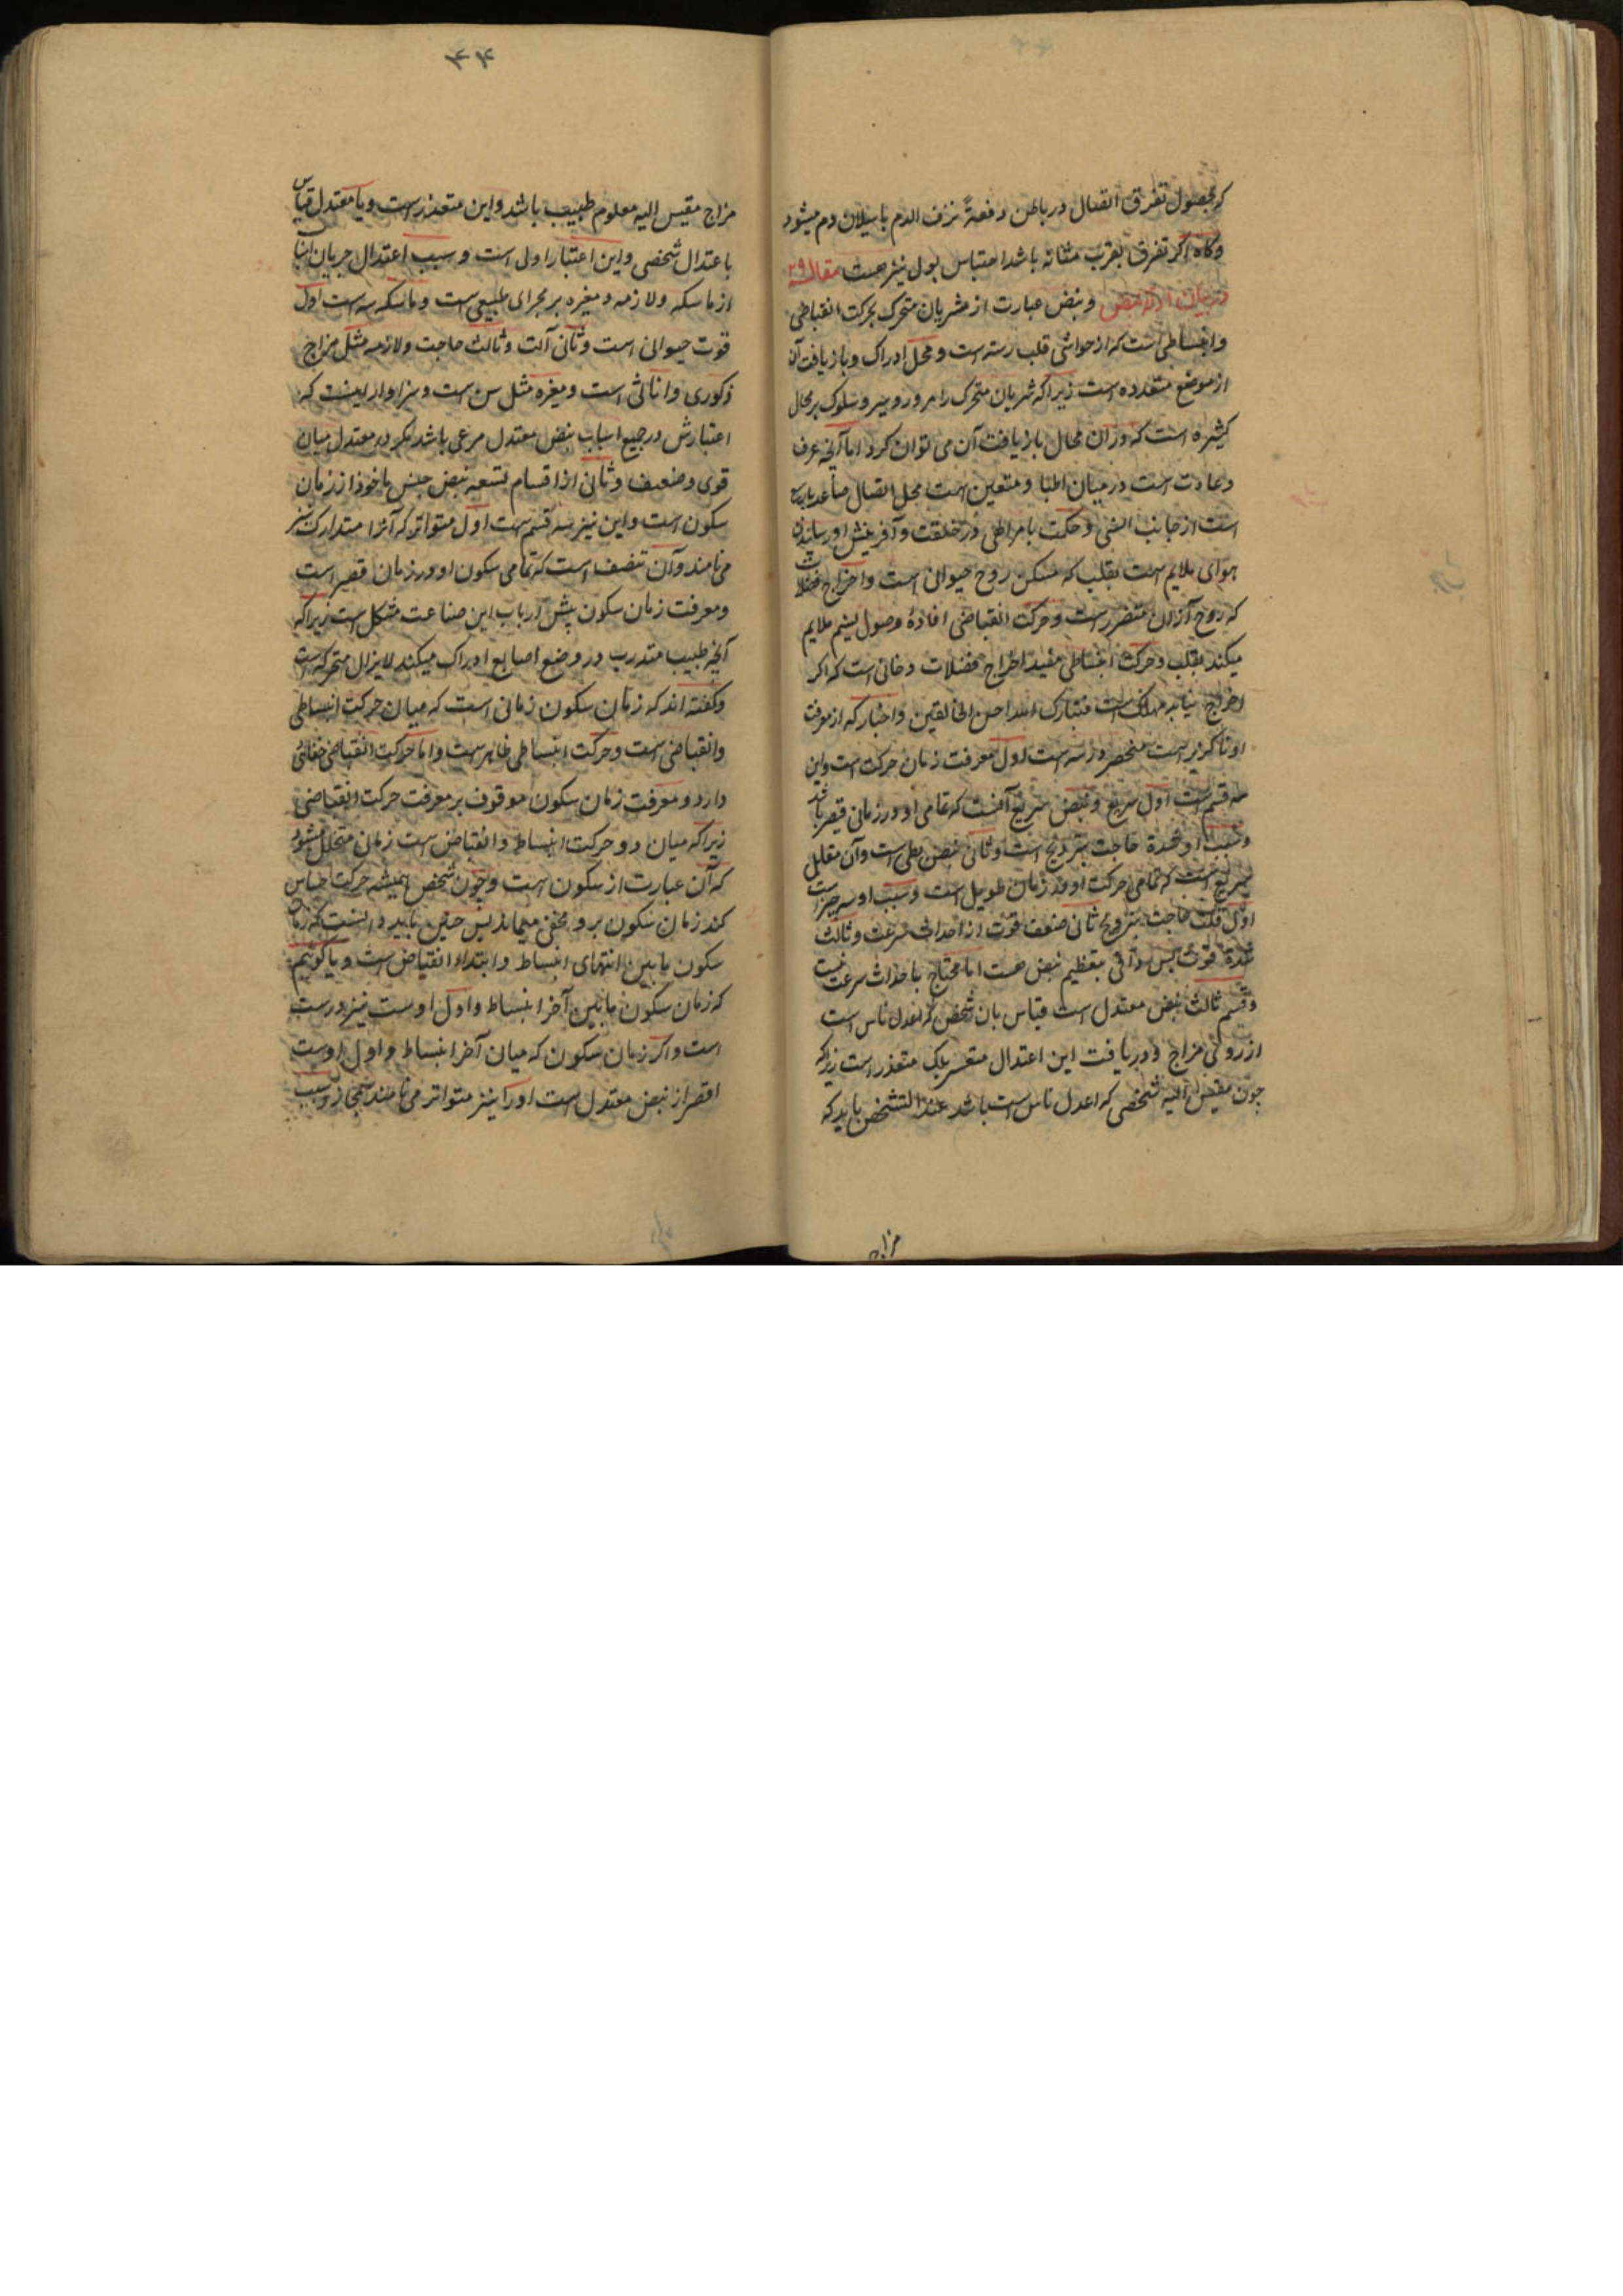 که بحصول تفرق اتصال در باطن دفعةً نزف الدم یا سیلان دم میشود
وگاه اگر تفرق بقرب مثانه باشد احتباس بول نیز هست مقاله ۲۹
در بیان نبض ونبض عبارت از شریان متحرک بحرکت انقباطی
وانبساطی است که از حواشی قلب رسته است ومحل ادراک وباز یافت آن
از موضع متعدده است زیراکه شریان متحرک را مرور وسیر وسلوک بر محال
کثیره است که دران محال باز یافت آن می توان کرد اما آنچه عرف
وعادت است در میان اطبا ومتعین است محل اتصال ساعد
است از جانب انسی وحکمت در خلقت وآفرینش او رساندن
هوای ملایم است بقلب که مسکن روح حیوانی است واخراج فضلات
که روح ازان متضرر است وحرکت انقباضی افادهٔ وصول نسیم ملایم
میکند بقلب وحرکت انبساطی مفید اخراج فضلات دخانی است که اگر
اخراج نیابد مهلک است فتبارک الله احسن الخالقین واخبار که از معرفت
او ناگزیر است منحصر در سه است اول معرفت زمان حرکت است واین
سه قسم است اول سریع ونبض سریع آنست که تمامی او در زمانی قصیر باشد
وسبب او شدة حاجت بترویح است وثانی نبض بطی است وآن مقابل
سریع است که تمامی حرکت او در زمان طویل است وسبب او سه چیز است
اول قلت حاجت بترویح ثانی ضعف قوت از احداث سرعت وثالث
شدة قوت پس وافی بتعظیم نبض هست اما محتاج باحداث سرعت نیست
وقسم ثالث نبض معتدل است قیاس بان شخص که اعدل ناس است
از روئی مزاج ودریافت این اعتدال متعسر بلک متعذر است زیراکه
چون مقیس الیه شخصی که اعدل ناس است باشد عند التشخص باید که
مزاج
۴۴
مزاج مقیس الیه معلوم طبیب باشد واین متعذر است ویا معتدل قیاس
باعتدال شخصی واین اعتبار اولی است وسبب اعتدال جریان اسباب
از ماسکه ولازمه ومغیره بر مجرای طبیعی است وماسکه سه است اول
قوت حیوانی است وثانی آلت وثالث حاجت ولازمه مثل مزاج
ذکوری واناثی است ومغیره مثل سن است وسزاوار اینست که
اعتبارش در جمیع اسباب نبض معتدل مرعی باشد مگر در معتدل میان
قوی وضعیف وثانی از اقسام تسعه نبض جنس ماخوذ از زمان
سکون است واین نیز سه قسم است اول متواتر که آنرا متدارک نیز
می نامند وآن نبضی است که تمامی سکون او در زمان قصیر است
ومعرفت زمان سکون پیش ارباب این صناعت مشکل است زیراکه
آنچه طبیب متدرب در وضع اصابع ادراک میکند لایزال متحرکه است
وگفته اند که زمان سکون زمانی است که میان حرکت انبساطی
وانقباضی است وحرکت انبساطی ظاهر است واما حرکت انقباضی خفائی
دارد ومعرفت زمان سکون موقوف بر معرفت حرکت انقباضی
زیراکه میان دو حرکت انبساط وانقباض است زمانی متخلل میشود
که آن عبارت از سکون است وچون شخص همیشه حرکت احساس
کند زمان سکون برو مخفی میماند پس چنین باید دانست که زمان
سکون مابین انتهای انبساط وابتداء انقباض است ویا گوئیم
که زمان سکون مابین آخر انبساط واول اوست نیز درست
است واگر زمان سکون که میان آخر انبساط واول اوست
اقصر از نبض معتدل است او را نیز متواتر می نامند مجازا وسبب